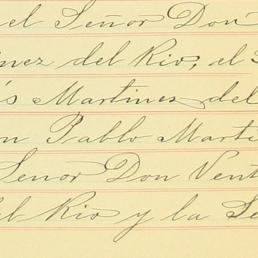 el Señor Don
nez del Rio, el
s Martinez del
n Pablo Marti
Señor Don Vent
el Rio y la Se